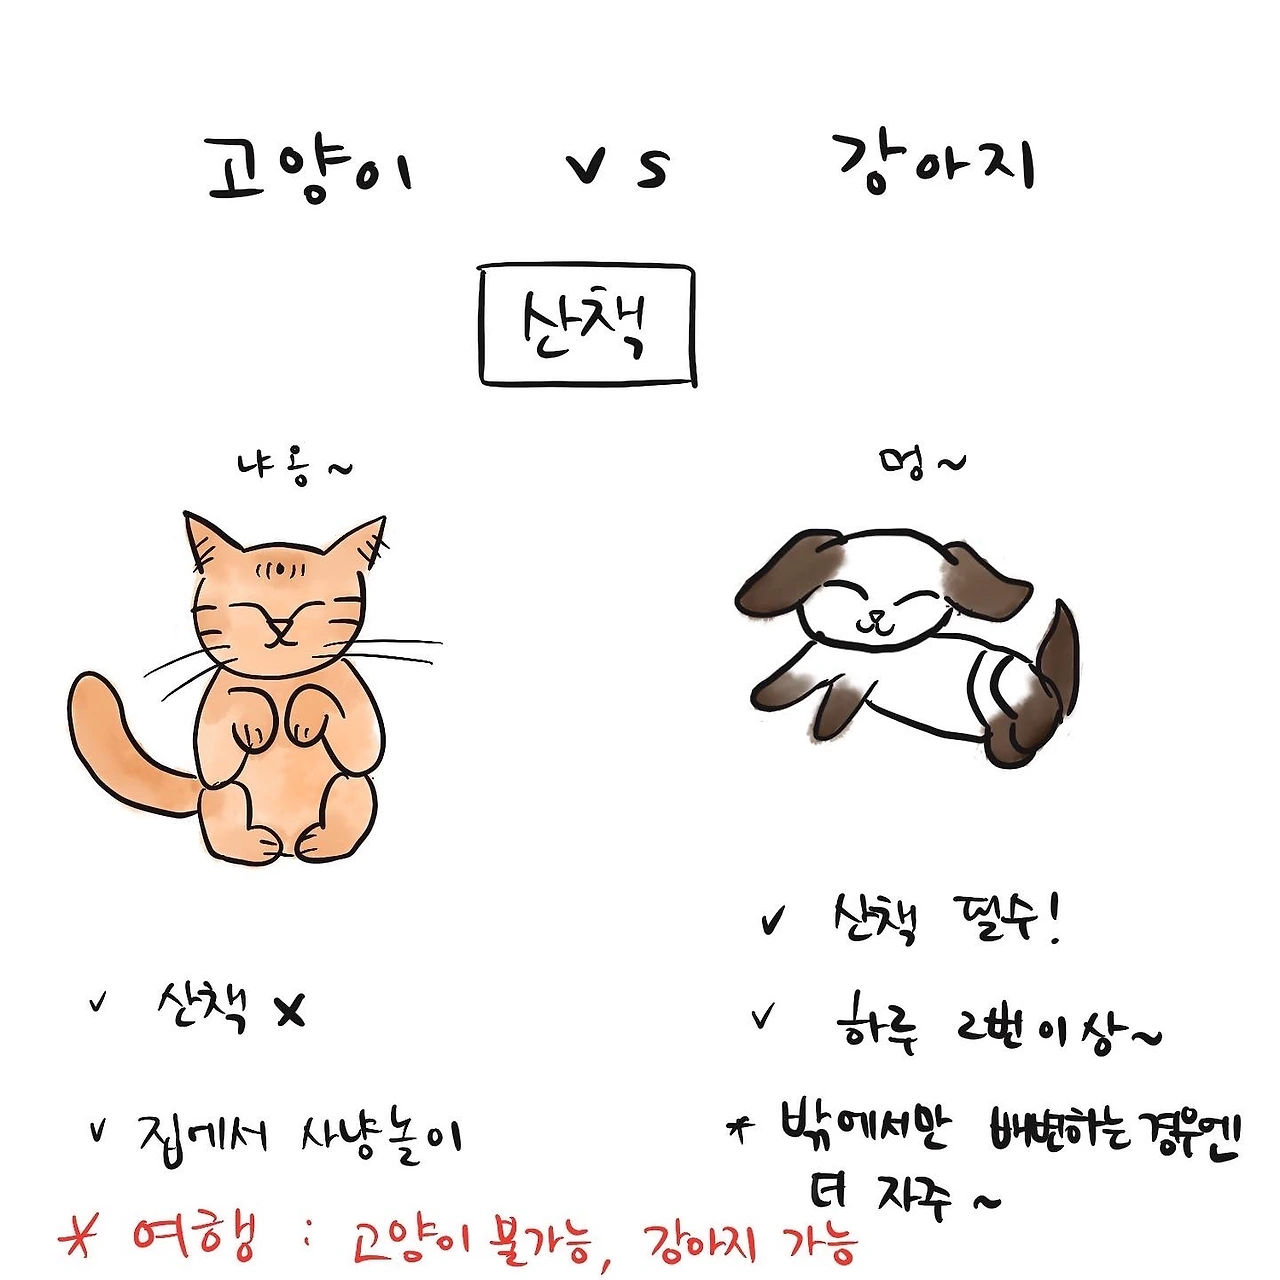 고양이 vs 강아지
산책
냐옹~
멍~
✓ 산책 x
✓ 집에서 사냥놀이
✓ 산책 필수!
✓ 하루 2번 이상~
* 밖에서만 배변하는 경우엔
더 자주~
* 여행 : 고양이 불가능, 강아지 가능